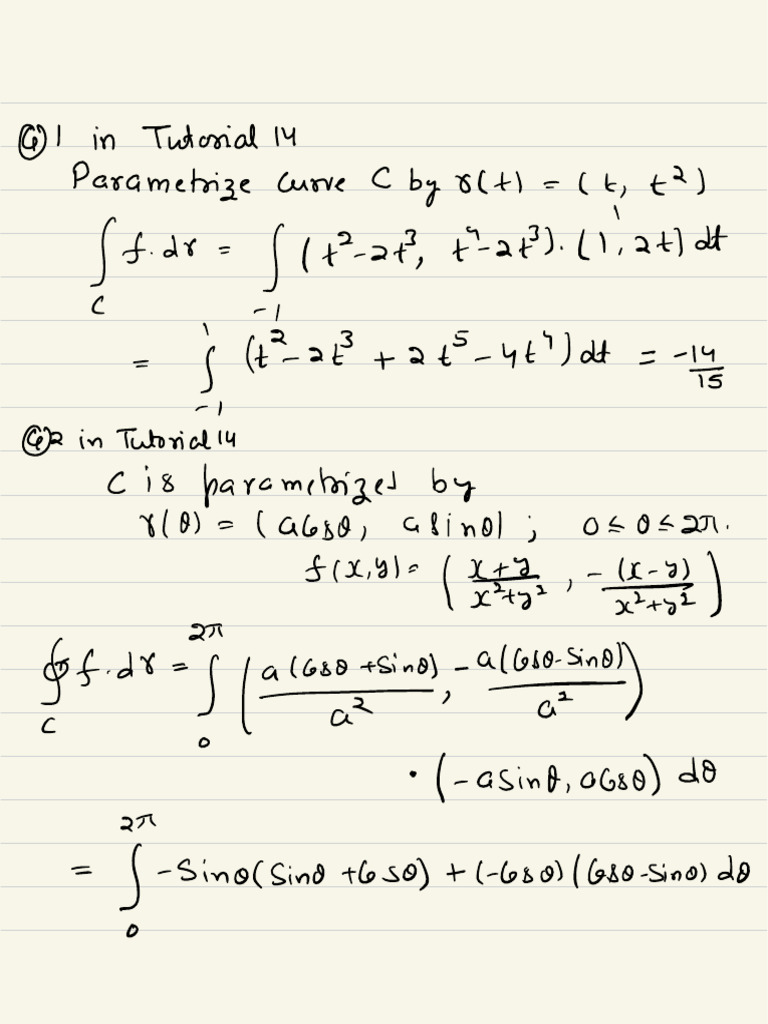 Q1 in Tutorial 14
Parametrize curve C by r(t) = (t, t²)
∫_C f.dr = ∫_{-1}^{1} (t²-2t³, t⁴-2t³).(1,2t)dt
= ∫_{-1}^{1} (t²-2t³+2t⁵-4t⁴)dt = -14/15
Q2 in Tutorial 14
C is parametrized by
r(θ) = (acosθ, asinθ); 0≤θ≤2π.
f(x,y)= ((x+y)/(x²+y²), -(x-y)/(x²+y²))
∮_C f.dr = ∫_0^{2π} (a(cosθ+sinθ)/a², -a(cosθ-sinθ)/a²)
· (-asinθ, acosθ) dθ
= ∫_0^{2π} -sinθ(sinθ+cosθ) + (-cosθ)(cosθ-sinθ) dθ